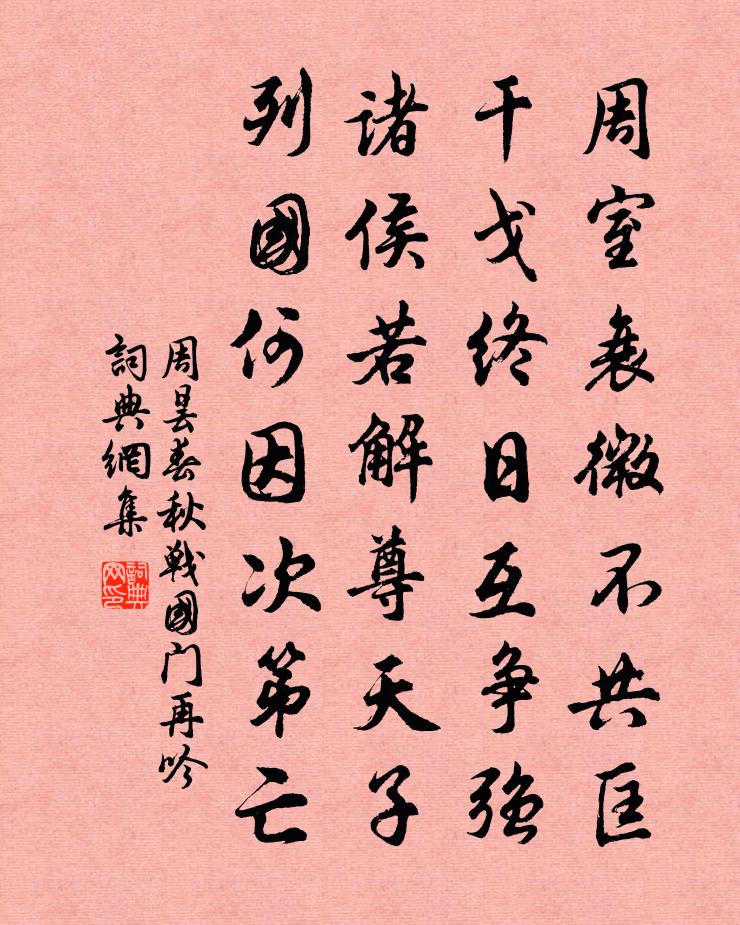 周室衰微不共匡
干戈終日互争強
諸侯若解尊天子
列國何因次第亡
周昙春秋戰國门再吟
詞典網集
詞典
网印